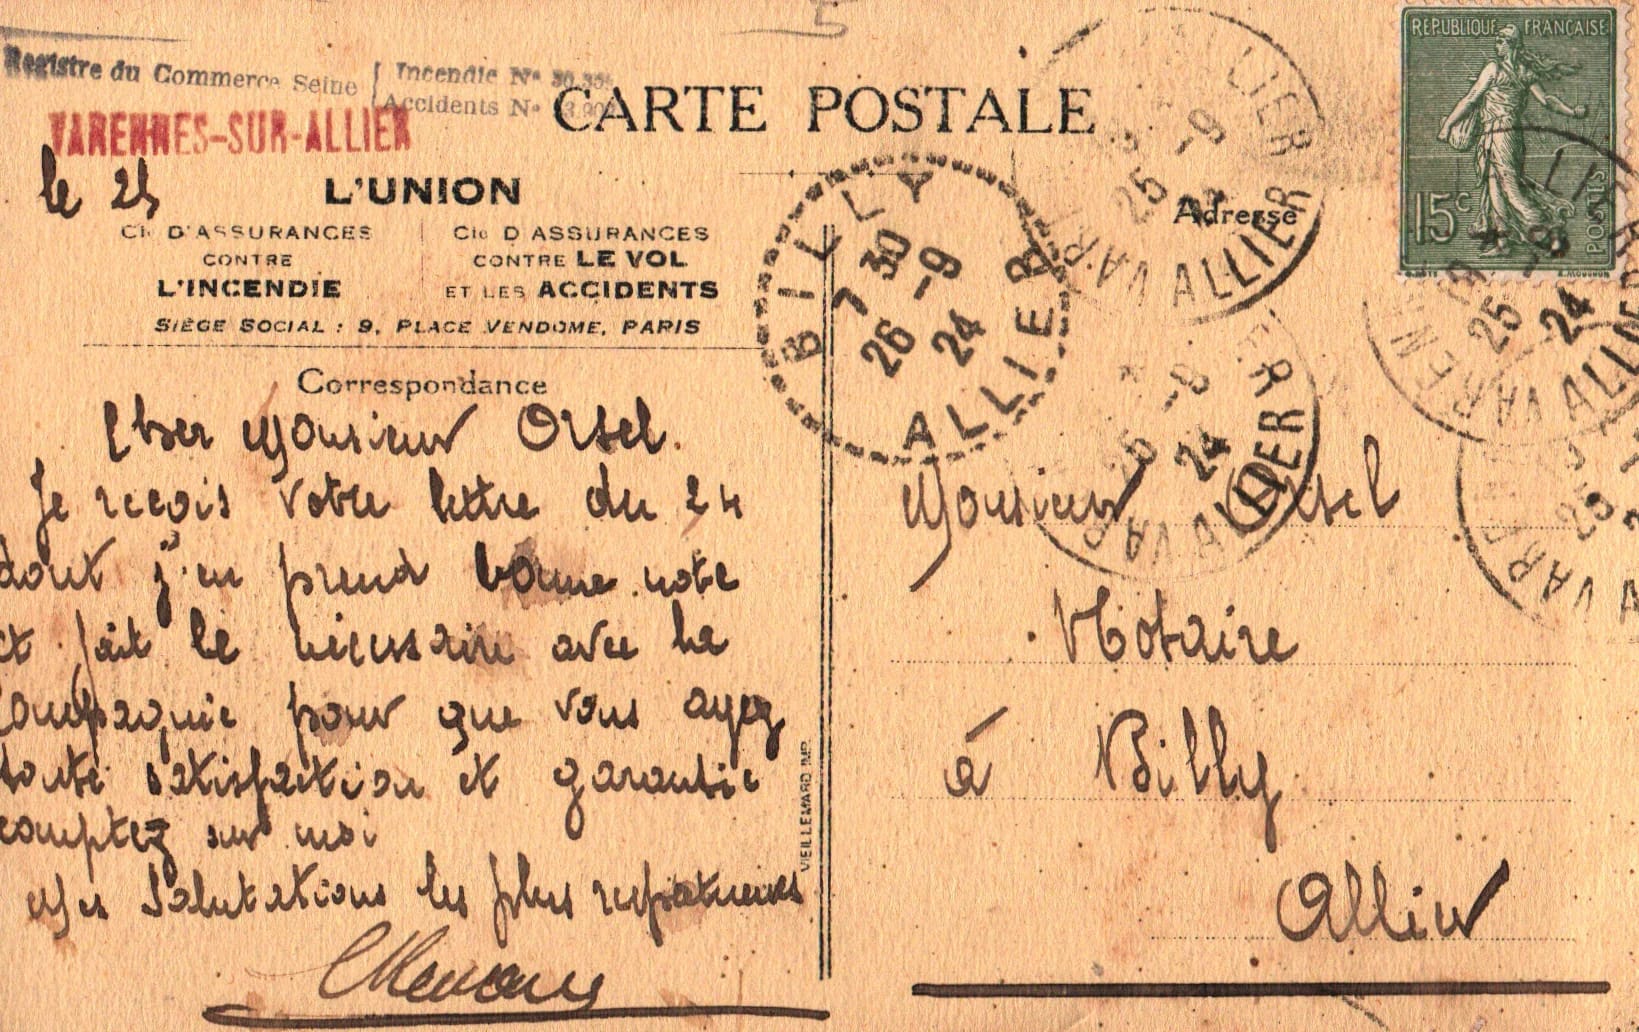 Registre du Commerce Seine { Incendie No 30.35
Accidents No
CARTE POSTALE
VARENNES-SUR-ALLIER
le 25
L'UNION
Cie D'ASSURANCES
CONTRE
L'INCENDIE
Cie D'ASSURANCES
CONTRE LE VOL
ET LES ACCIDENTS
SIÈGE SOCIAL : 9, PLACE VENDOME, PARIS
Correspondance
Cher Monsieur Orsel.
Je reçois votre lettre du 24
dont j'en prend bonne note
et fait le nécessaire avec la
Compagnie pour que vous ayez
toute satisfaction et garantie
comptez sur moi
Mes Salutations les plus respectueuses
VIEILLEMARD IMP.
BILLY
7 30
26 -9
24
ALLIER
Adresse
25 -9
24
ALLIER
25 -9
24
ALLIER
REPUBLIQUE FRANÇAISE
15c
POSTES
25 -9
24
VARENN
ALLIER
25
Monsieur Orsel
Notaire
à Billy
Allier